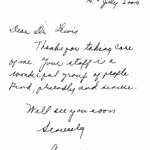 July 2000
Dear Dr. Lewis
Thank you for taking care
of me. Your staff is a
wonderful group of people
kind, friendly and sincere.
Will see you soon
Sincerely